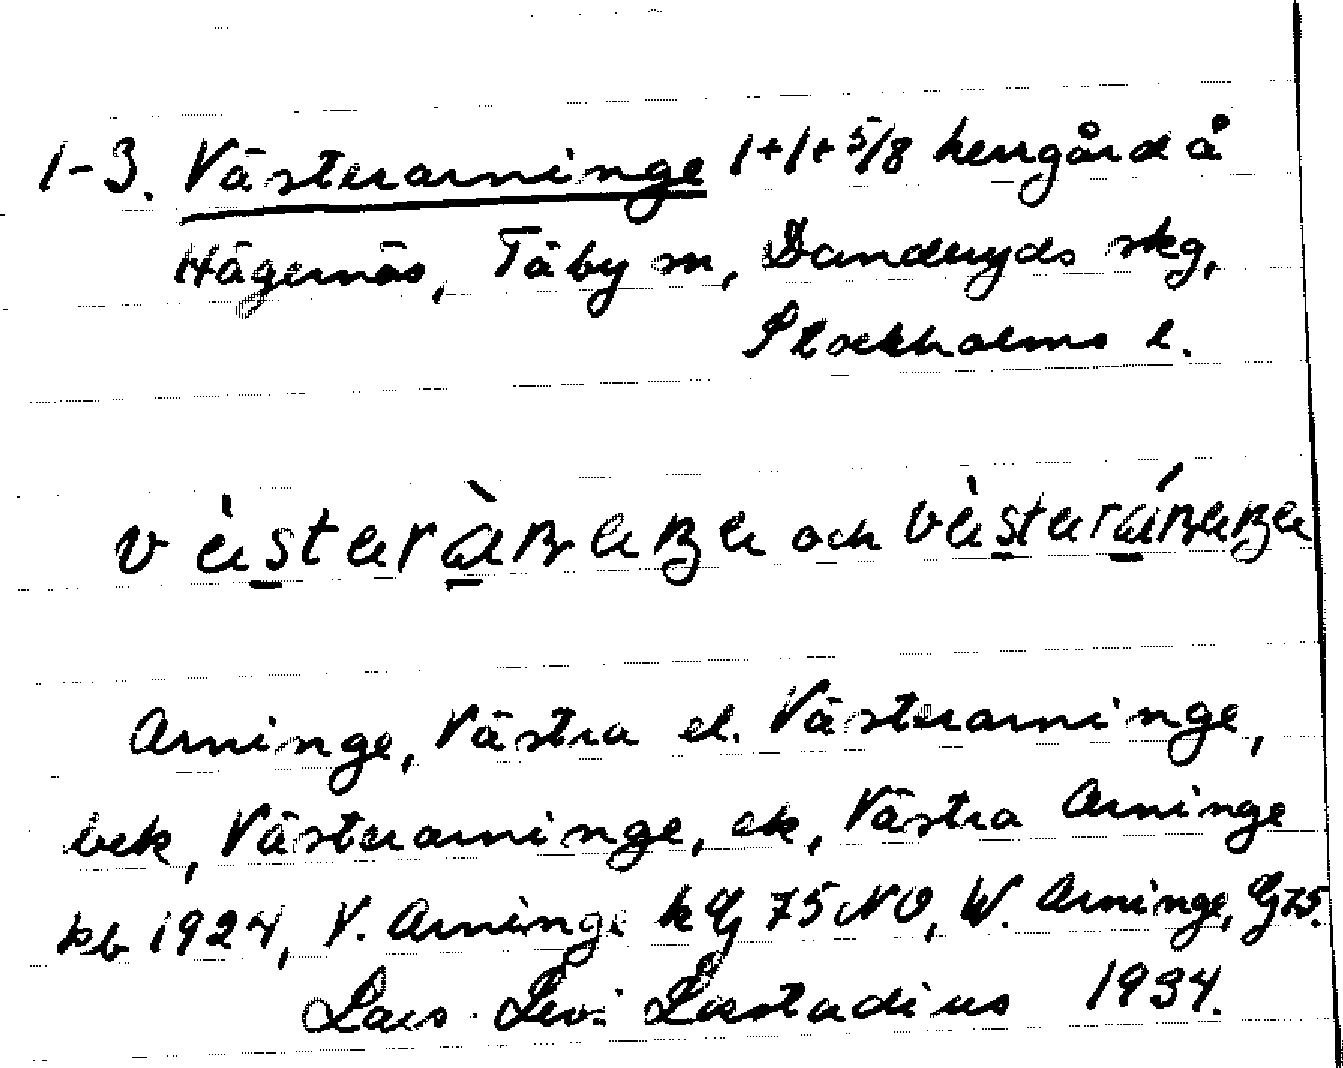 1-3. Västerarninge 1+1+5/8 herrgård å
Hägernäs, Täby sn, Danderyds skg,
Stockholms l.
och
Arninge, Västra el. Västerarninge,
bek, Västerarninge, ek, Västra Arninge
kb 1924, V. Arninge k Gj 75 NO, W. Arninge, Gj 75.
Lars-Levi Læstadius 1934.